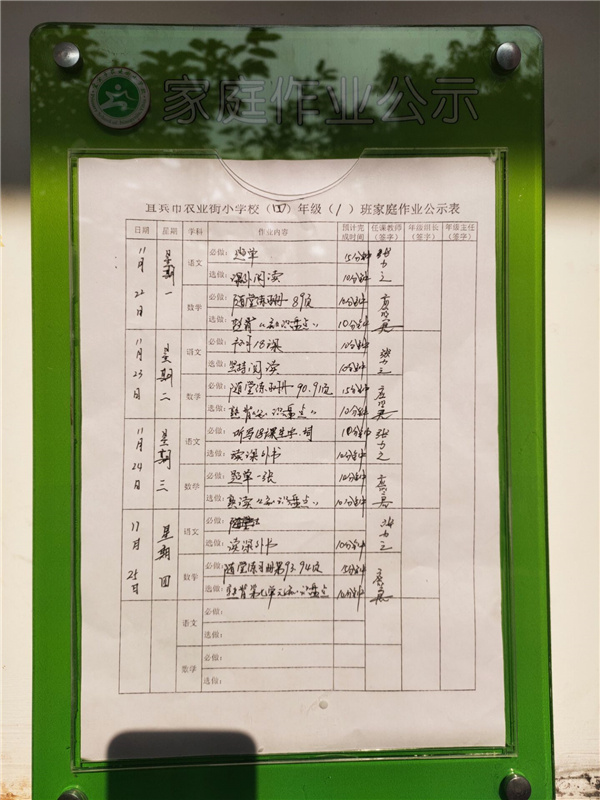 家庭作业公示
宜宾市农业街小学校（四）年级（1）班家庭作业公示表
日期 星期 学科 作业内容 预计完成时间 任课教师（签字） 年级组长（签字） 年级主任（签字）
11月22日 星期一 语文 必做：题单 15分钟
选做：课外阅读 10分钟
数学 必做：随堂练习册 89页 10分钟
选做：熟背“知识盘点” 10分钟
11月23日 星期二 语文 必做： 18课 10分钟
选做： 阅读 10分钟
数学 必做：随堂练习册 90.91页 15分钟
选做：熟背“知识盘点” 10分钟
11月24日 星期三 语文 必做：听写 课生字.词 10分钟
选做：读课外书 10分钟
数学 必做：题单一张 10分钟
选做： 读“知识盘点” 10分钟
11月25日 星期四 语文 必做：
选做：读课外书 10分钟
数学 必做：随堂练习册第93.94页 15分钟
选做：熟背第七单元知识盘点 10分钟
语文 必做：
选做：
数学 必做：
选做：